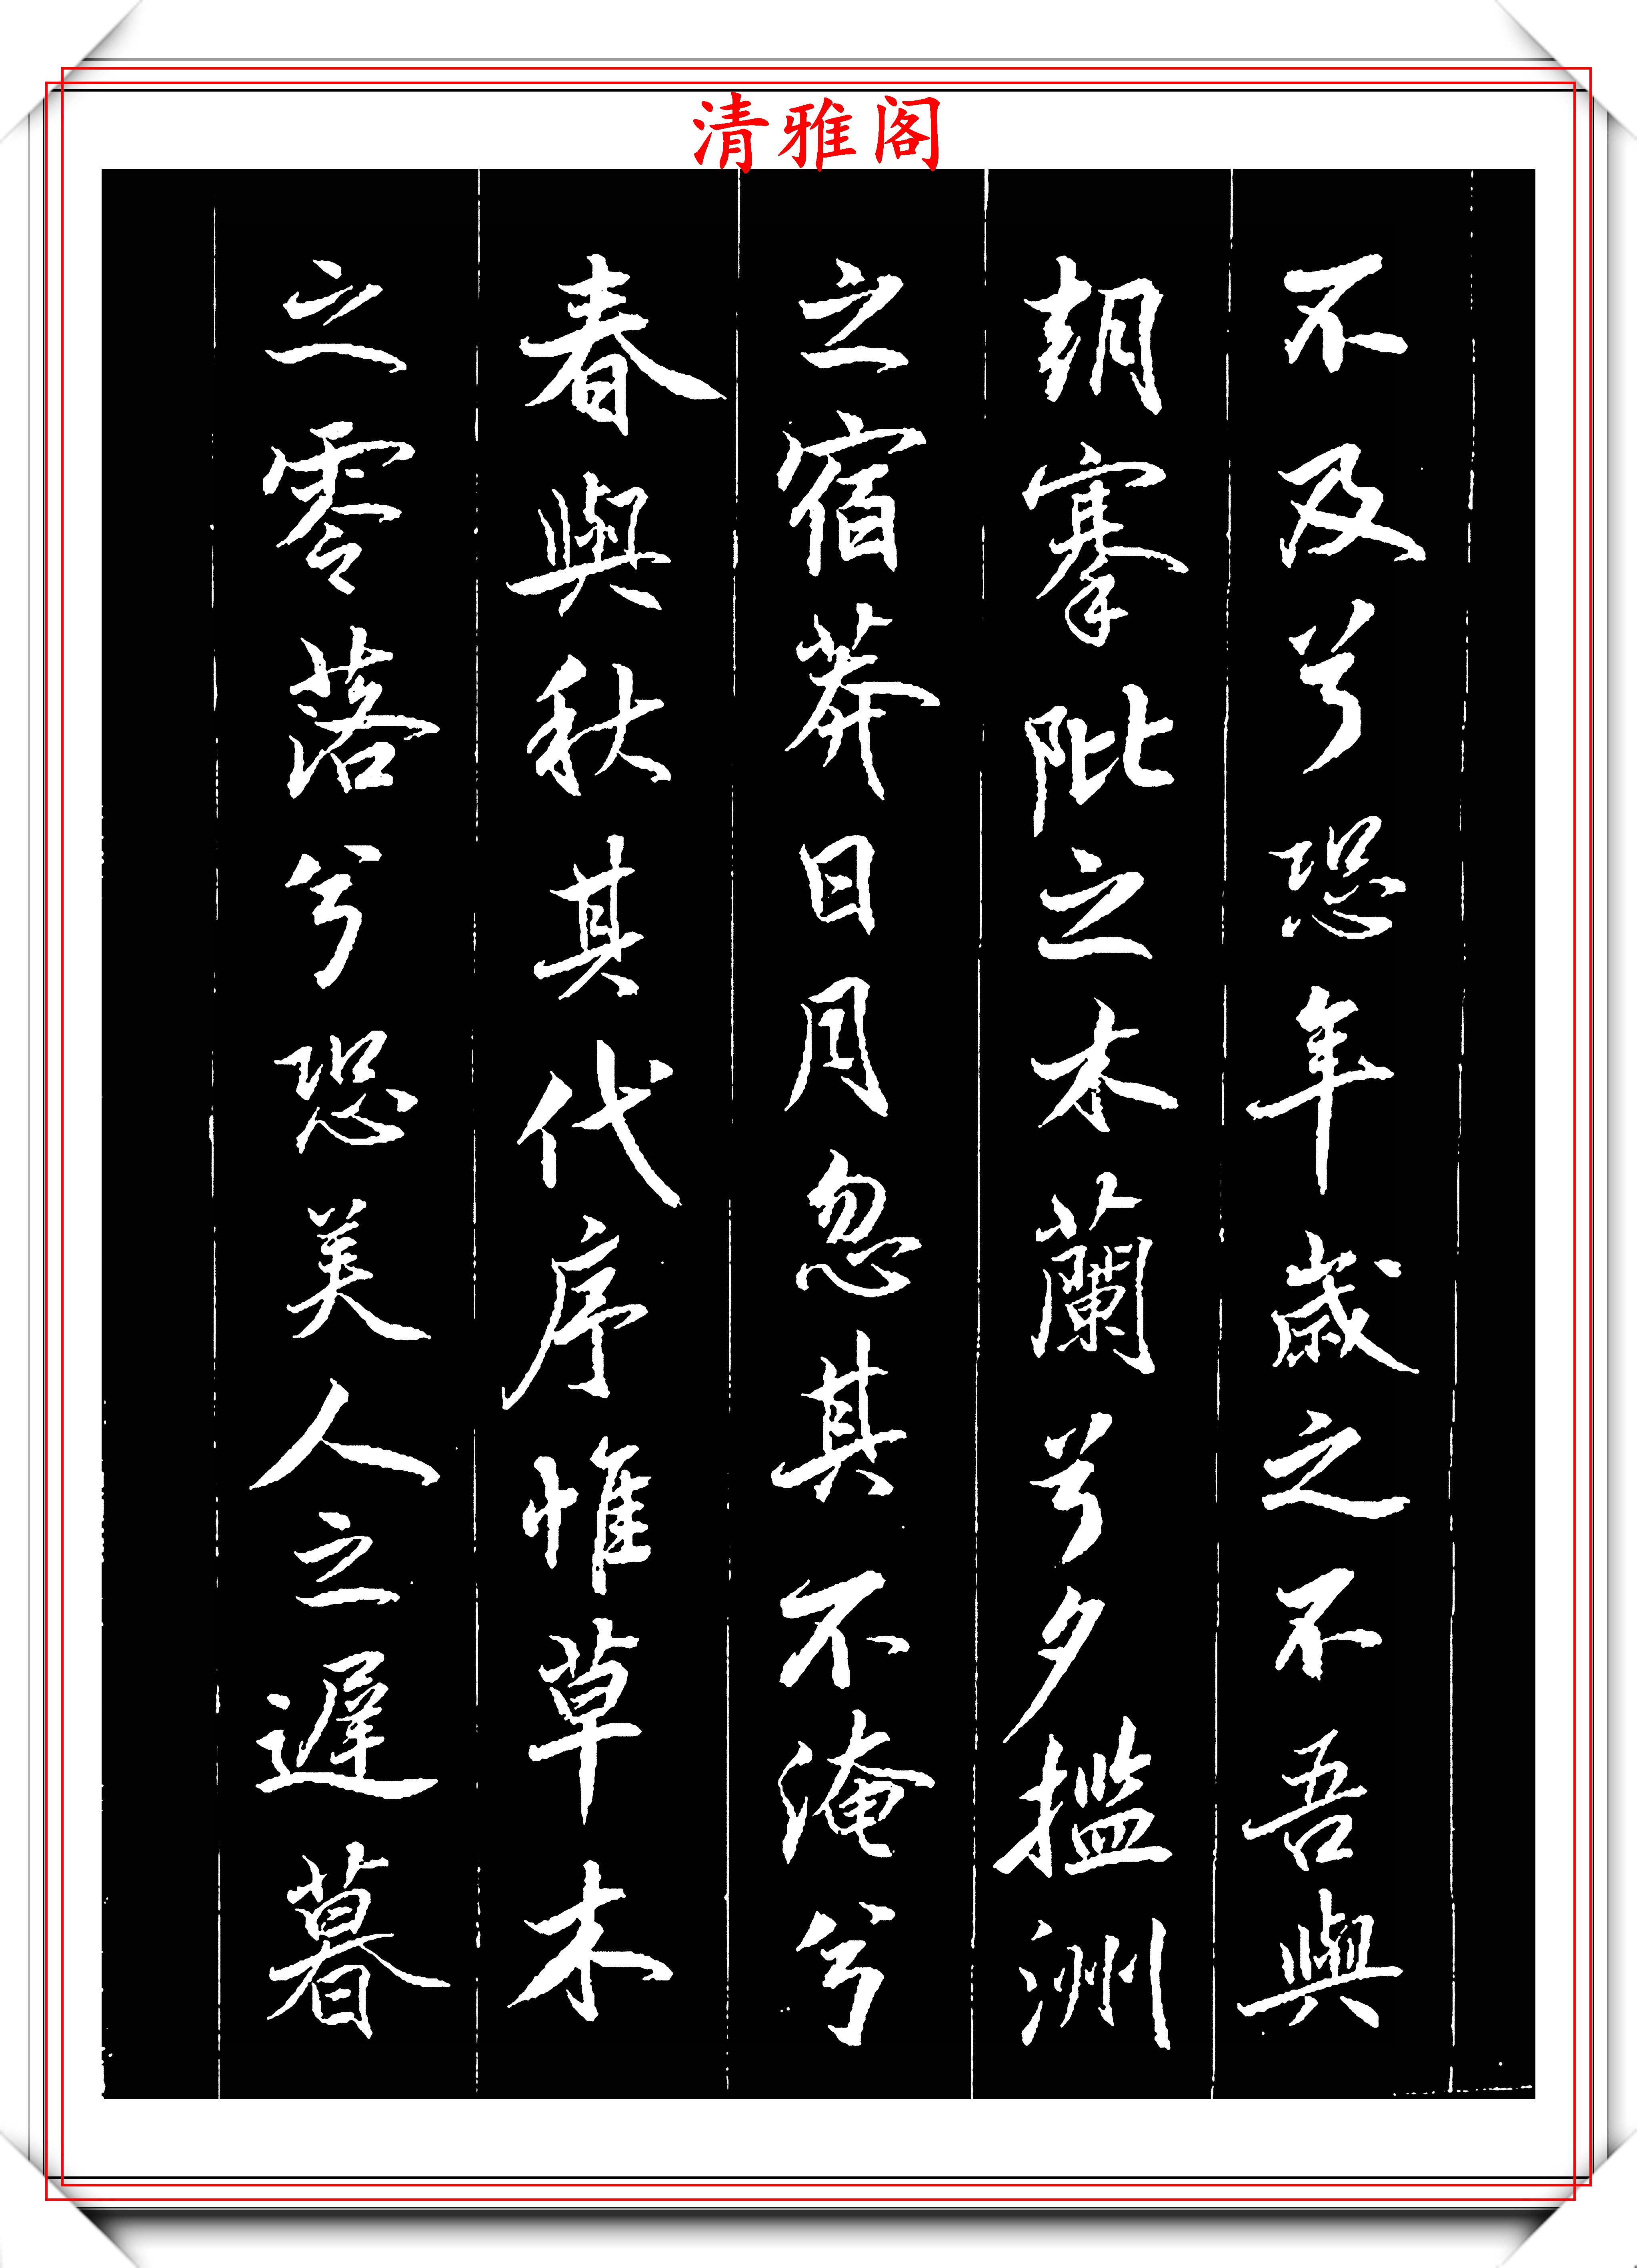 清雅阁
不及兮恐年歲之不吾與
朝搴阰之木蘭兮夕擥洲
之宿莽日月忽其不淹兮
春與秋其代序惟草木
之零落兮恐美人之遲暮